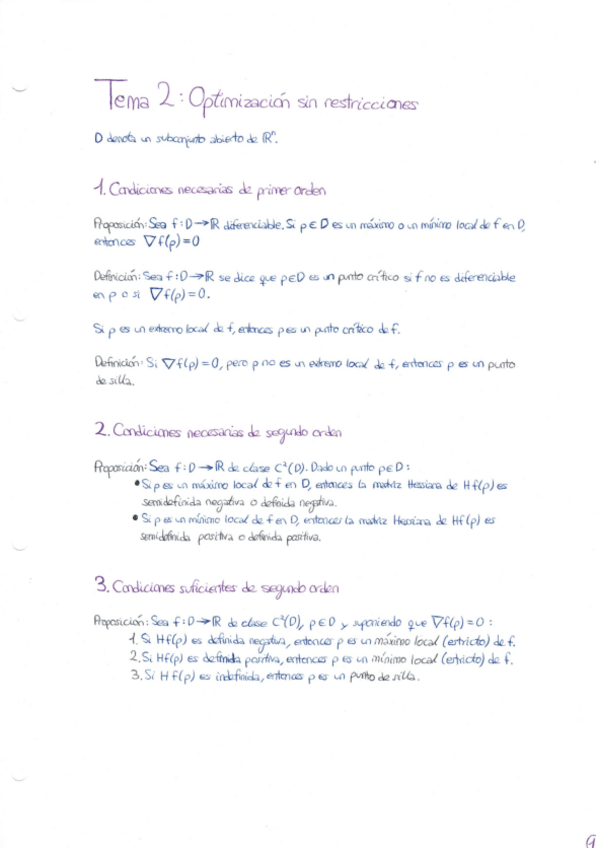 Tema 2: Optimización sin restricciones
D denota un subconjunto abierto de ℝⁿ.
1. Condiciones necesarias de primer orden
Proposición: Sea f: D → ℝ diferenciable. Si p ∈ D es un máximo o un mínimo local de f en D,
entonces ∇f(p) = 0
Definición: Sea f: D → ℝ se dice que p ∈ D es un punto crítico si f no es diferenciable
en p o si ∇f(p) = 0.
Si p es un extremo local de f, entonces p es un punto crítico de f.
Definición: Si ∇f(p) = 0, pero p no es un extremo local de f, entonces p es un punto
de silla.
2. Condiciones necesarias de segundo orden
Proposición: Sea f: D → ℝ de clase C²(D). Dado un punto p ∈ D:
• Si p es un máximo local de f en D, entonces la matriz Hessiana de Hf(p) es
semidefinida negativa o definida negativa.
• Si p es un mínimo local de f en D, entonces la matriz Hessiana de Hf(p) es
semidefinida positiva o definida positiva.
3. Condiciones suficientes de segundo orden
Proposición: Sea f: D → ℝ de clase C²(D), p ∈ D y suponiendo que ∇f(p) = 0:
1. Si Hf(p) es definida negativa, entonces p es un máximo local (estricto) de f.
2. Si Hf(p) es definida positiva, entonces p es un mínimo local (estricto) de f.
3. Si Hf(p) es indefinida, entonces p es un punto de silla.